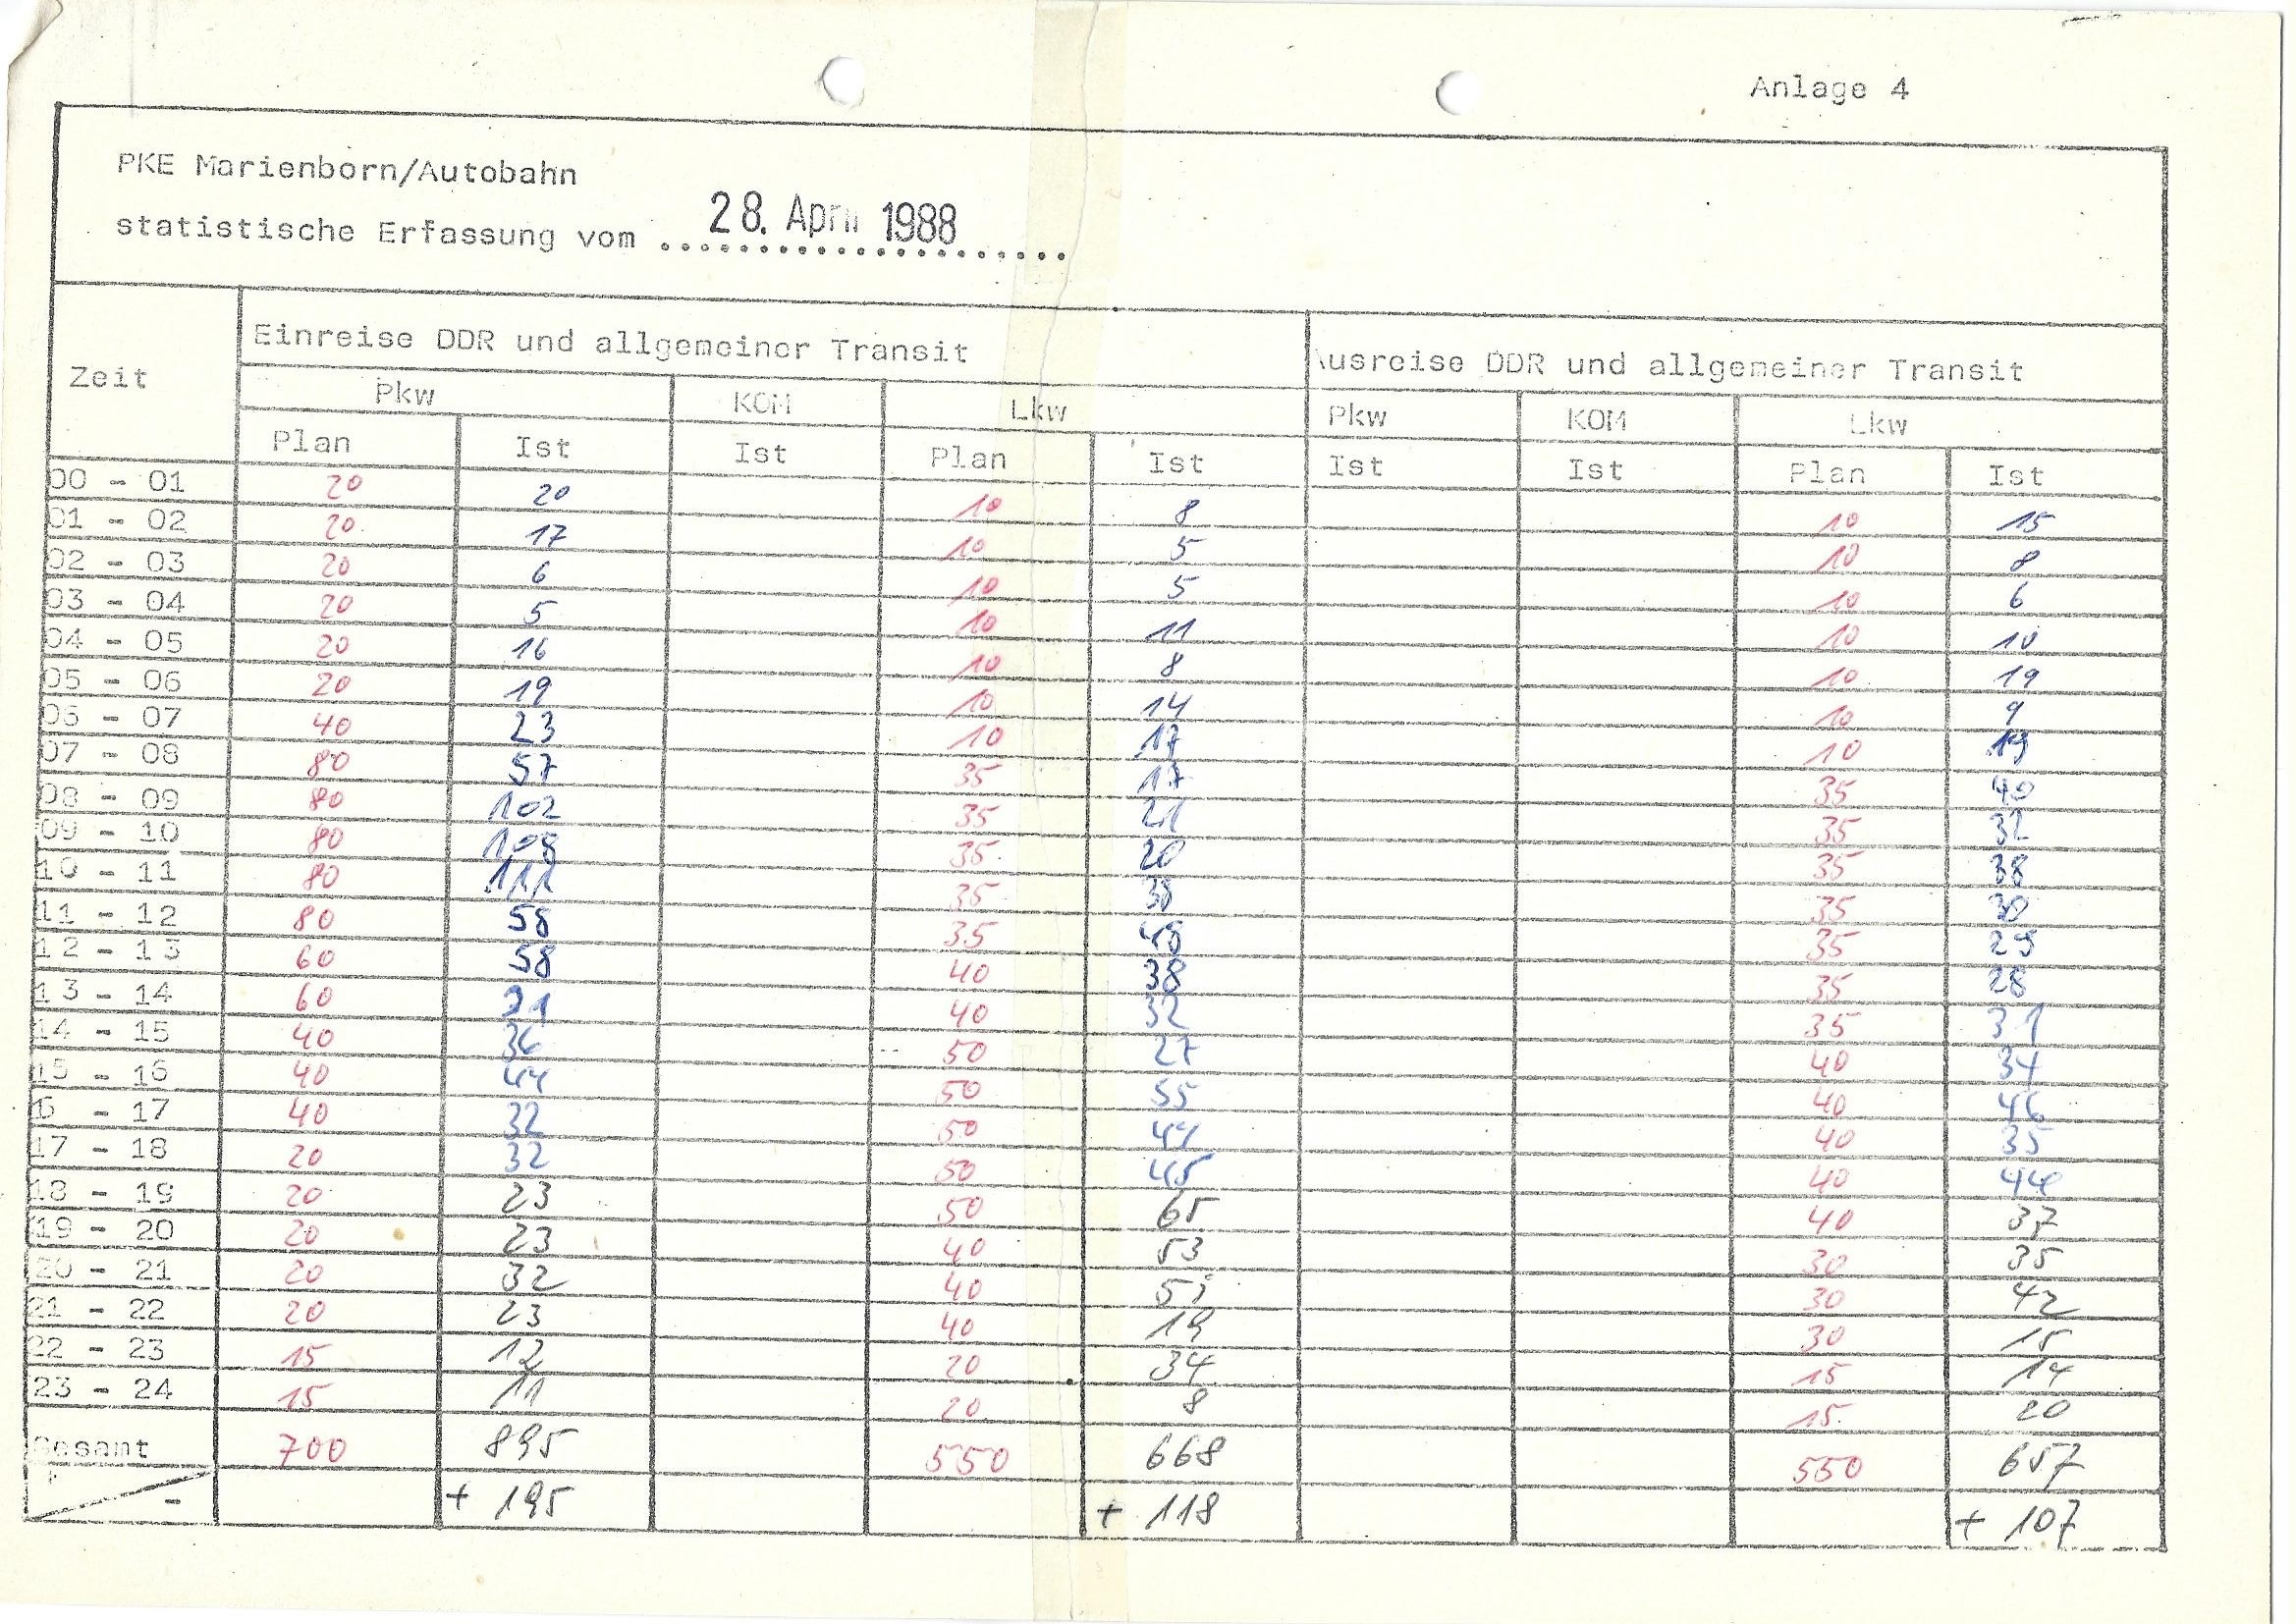 Anlage 4
PKE Marienborn/Autobahn
statistische Erfassung vom 28. April 1988
Zeit Einreise DDR und allgemeiner Transit Ausreise DDR und allgemeiner Transit
Pkw KOM Lkw Pkw KOM Lkw
Plan Ist Ist Plan Ist Ist Ist Plan Ist
00 - 01 20 20 10 8 10 15
01 - 02 20 17 10 5 10 8
02 - 03 20 6 10 5 10 6
03 - 04 20 5 10 11 10 10
04 - 05 20 16 10 8 10 19
05 - 06 20 19 10 14 10 9
06 - 07 40 23 10 17 10
07 - 08 80 57 35 17 35 40
08 - 09 80 102 35 21 35 32
09 - 10 80 35 20 35 38
10 - 11 80 111 35 38 35 30
11 - 12 80 58 35 48 35 29
12 - 13 60 58 40 38 35 28
13 - 14 60 40 32 35 31
14 - 15 40 36 50 27 40 34
15 - 16 40 44 50 55 40 46
6 - 17 40 32 50 44 40 35
17 - 18 20 32 50 45 40 44
18 - 19 20 23 50 65 40 37
19 - 20 20 23 40 53 30 35
20 - 21 20 32 40 30 42
21 - 22 20 23 40 19 30 15
22 - 23 15 12 20 34 15 14
23 - 24 15 11 20 8 15 20
Gesamt 700 895 550 668 550 657
- + 195 + 118 + 107